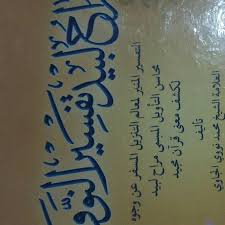 مراح لبيد تفسير النووي
التفسير المنير لمعالم التنزيل المسفر عن وجوه
محاسن التأويل المسمى مراح لبيد
لكشف معنى قرآن مجيد
تأليف
العلامة الشيخ محمد نووي الجاوي